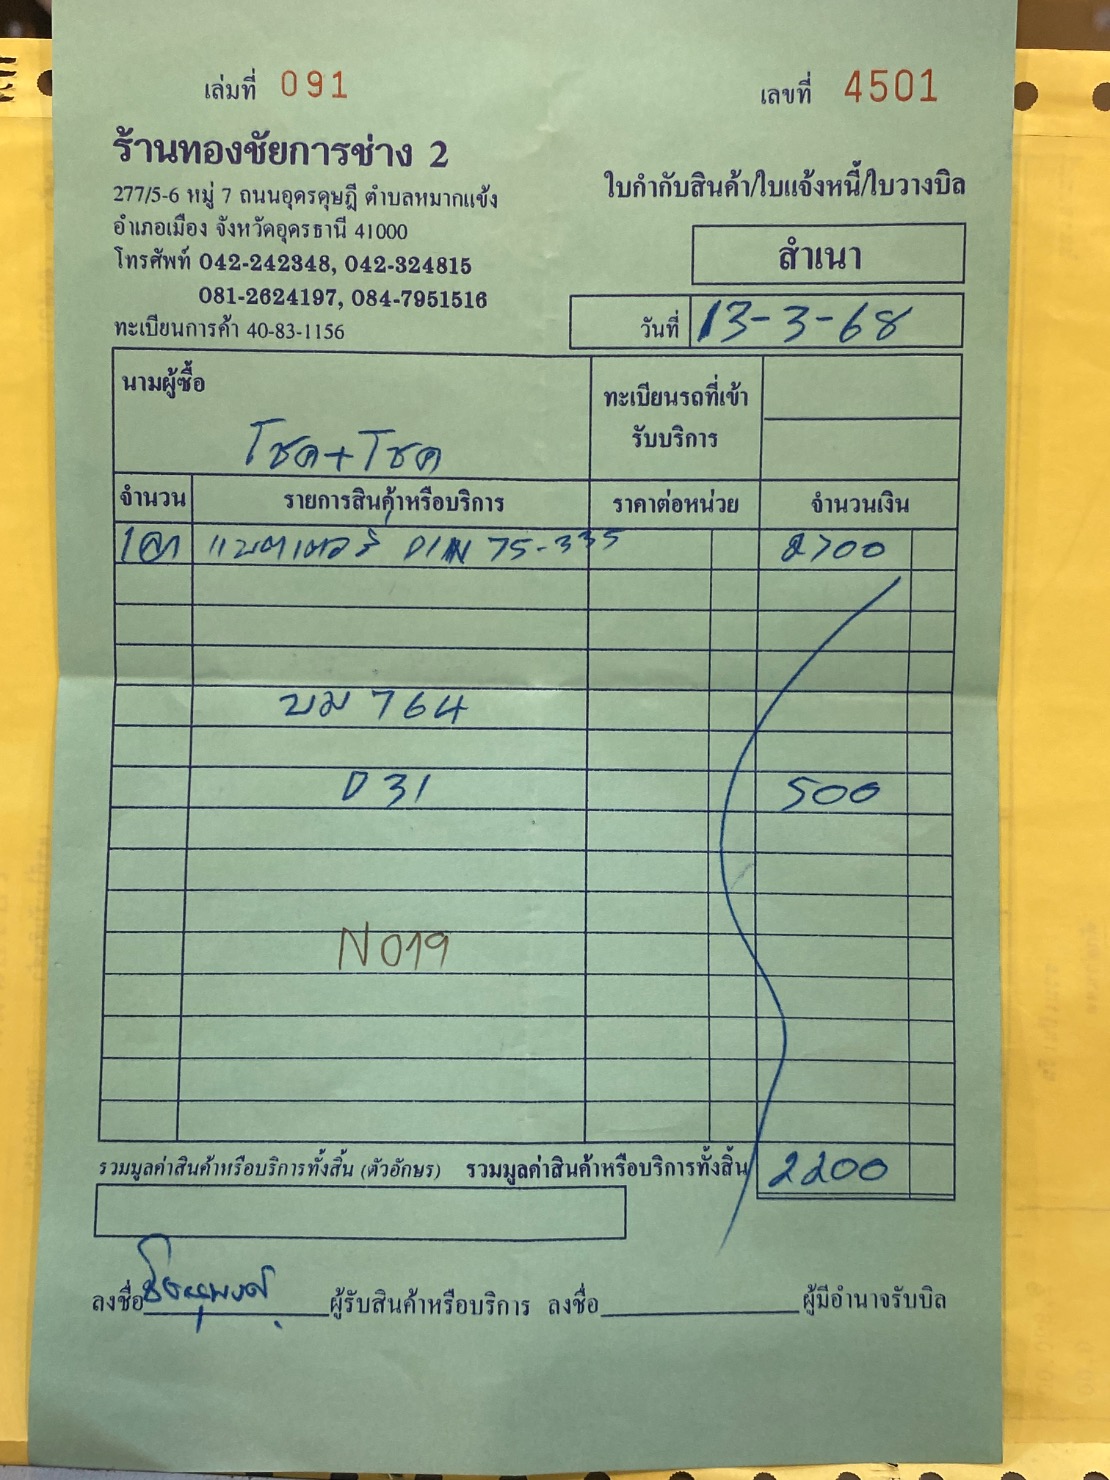 เล่มที่ 091
เลขที่ 4501
ร้านทองชัยการช่าง 2
277/5-6 หมู่ 7 ถนนอุดรดุษฎี ตำบลหมากแข้ง
อำเภอเมือง จังหวัดอุดรธานี 41000
โทรศัพท์ 042-242348, 042-324815
081-2624197, 084-7951516
ทะเบียนการค้า 40-83-1156
ใบกำกับสินค้า/ใบแจ้งหนี้/ใบวางบิล
สำเนา
วันที่ 13-3-68
นามผู้ซื้อ
โชค+โชค
ทะเบียนรถที่เข้า
รับบริการ
จำนวน รายการสินค้าหรือบริการ ราคาต่อหน่วย จำนวนเงิน
แบตเตอรี่ DIN 75-335 2700
บม 764
D31 500
N019
รวมมูลค่าสินค้าหรือบริการทั้งสิ้น (ตัวอักษร) รวมมูลค่าสินค้าหรือบริการทั้งสิ้น 2200
ลงชื่อ ผู้รับสินค้าหรือบริการ ลงชื่อ ผู้มีอำนาจรับบิล